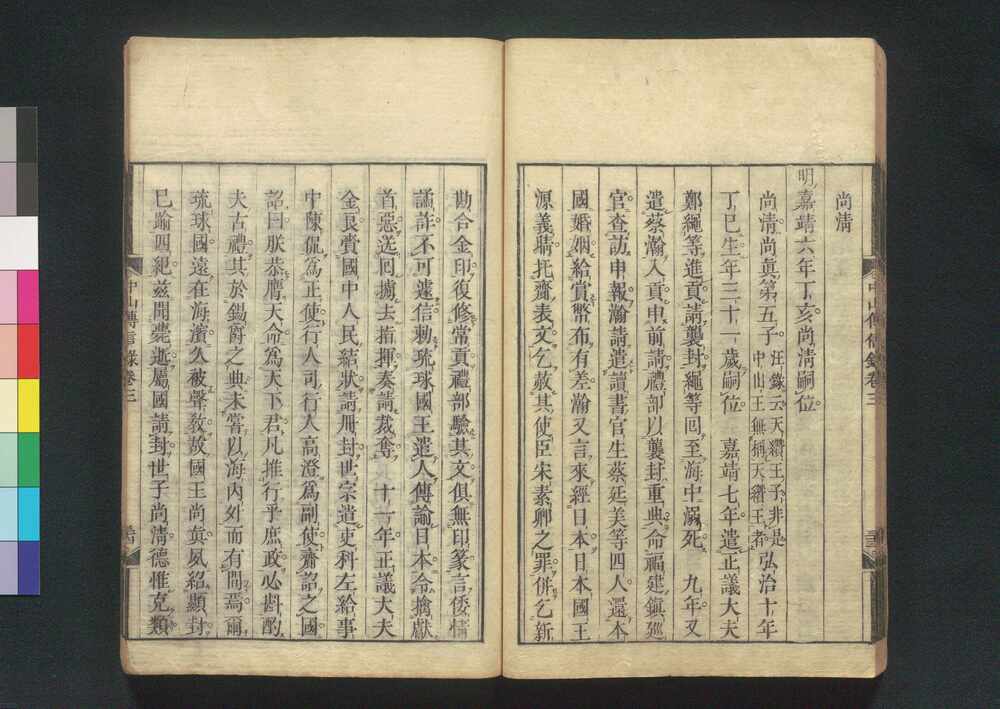 尚清
明嘉靖六年丁亥尚清嗣位
尚清尚眞第五子汪錄云天纘王子非是中山王無稱天纘王者弘治十年
丁巳生年三十一歲嗣位 嘉靖七年遣正議大夫
鄭繩等進貢請襲封繩等回至海中溺死 九年又
遣蔡瀚入貢申前請禮部以襲封重典命福建鎭巡
官查訪申報瀚請遣讀書官生蔡廷美等四人還本
國婚姻給賞幣布有差瀚又言來經日本日本國王
源義晴托齎表文乞赦其使臣宋素卿之罪併乞新
勘合金印復修常貢禮部驗其文俱無印篆言倭情
譎詐不可遽信勅琉球國王遣人傳諭日本令擒獻
首惡送回擄去指揮奏請裁奪 十一年正議大夫
金良賫國中人民結狀請冊封世宗遣吏科左給事
中陳侃爲正使行人司行人高澄爲副使齎詔之國
詔曰朕恭膺天命爲天下君凡推行乎庶政必斟酌
夫古禮其於錫爵之典未嘗以海內外而有間焉爾
琉球國遠在海濱久被聲敎故國王尚眞夙紹顯封
已踰四紀茲聞薨逝屬國請封世子尚清德惟克類
中山傳信錄卷三
中山傳信錄卷三